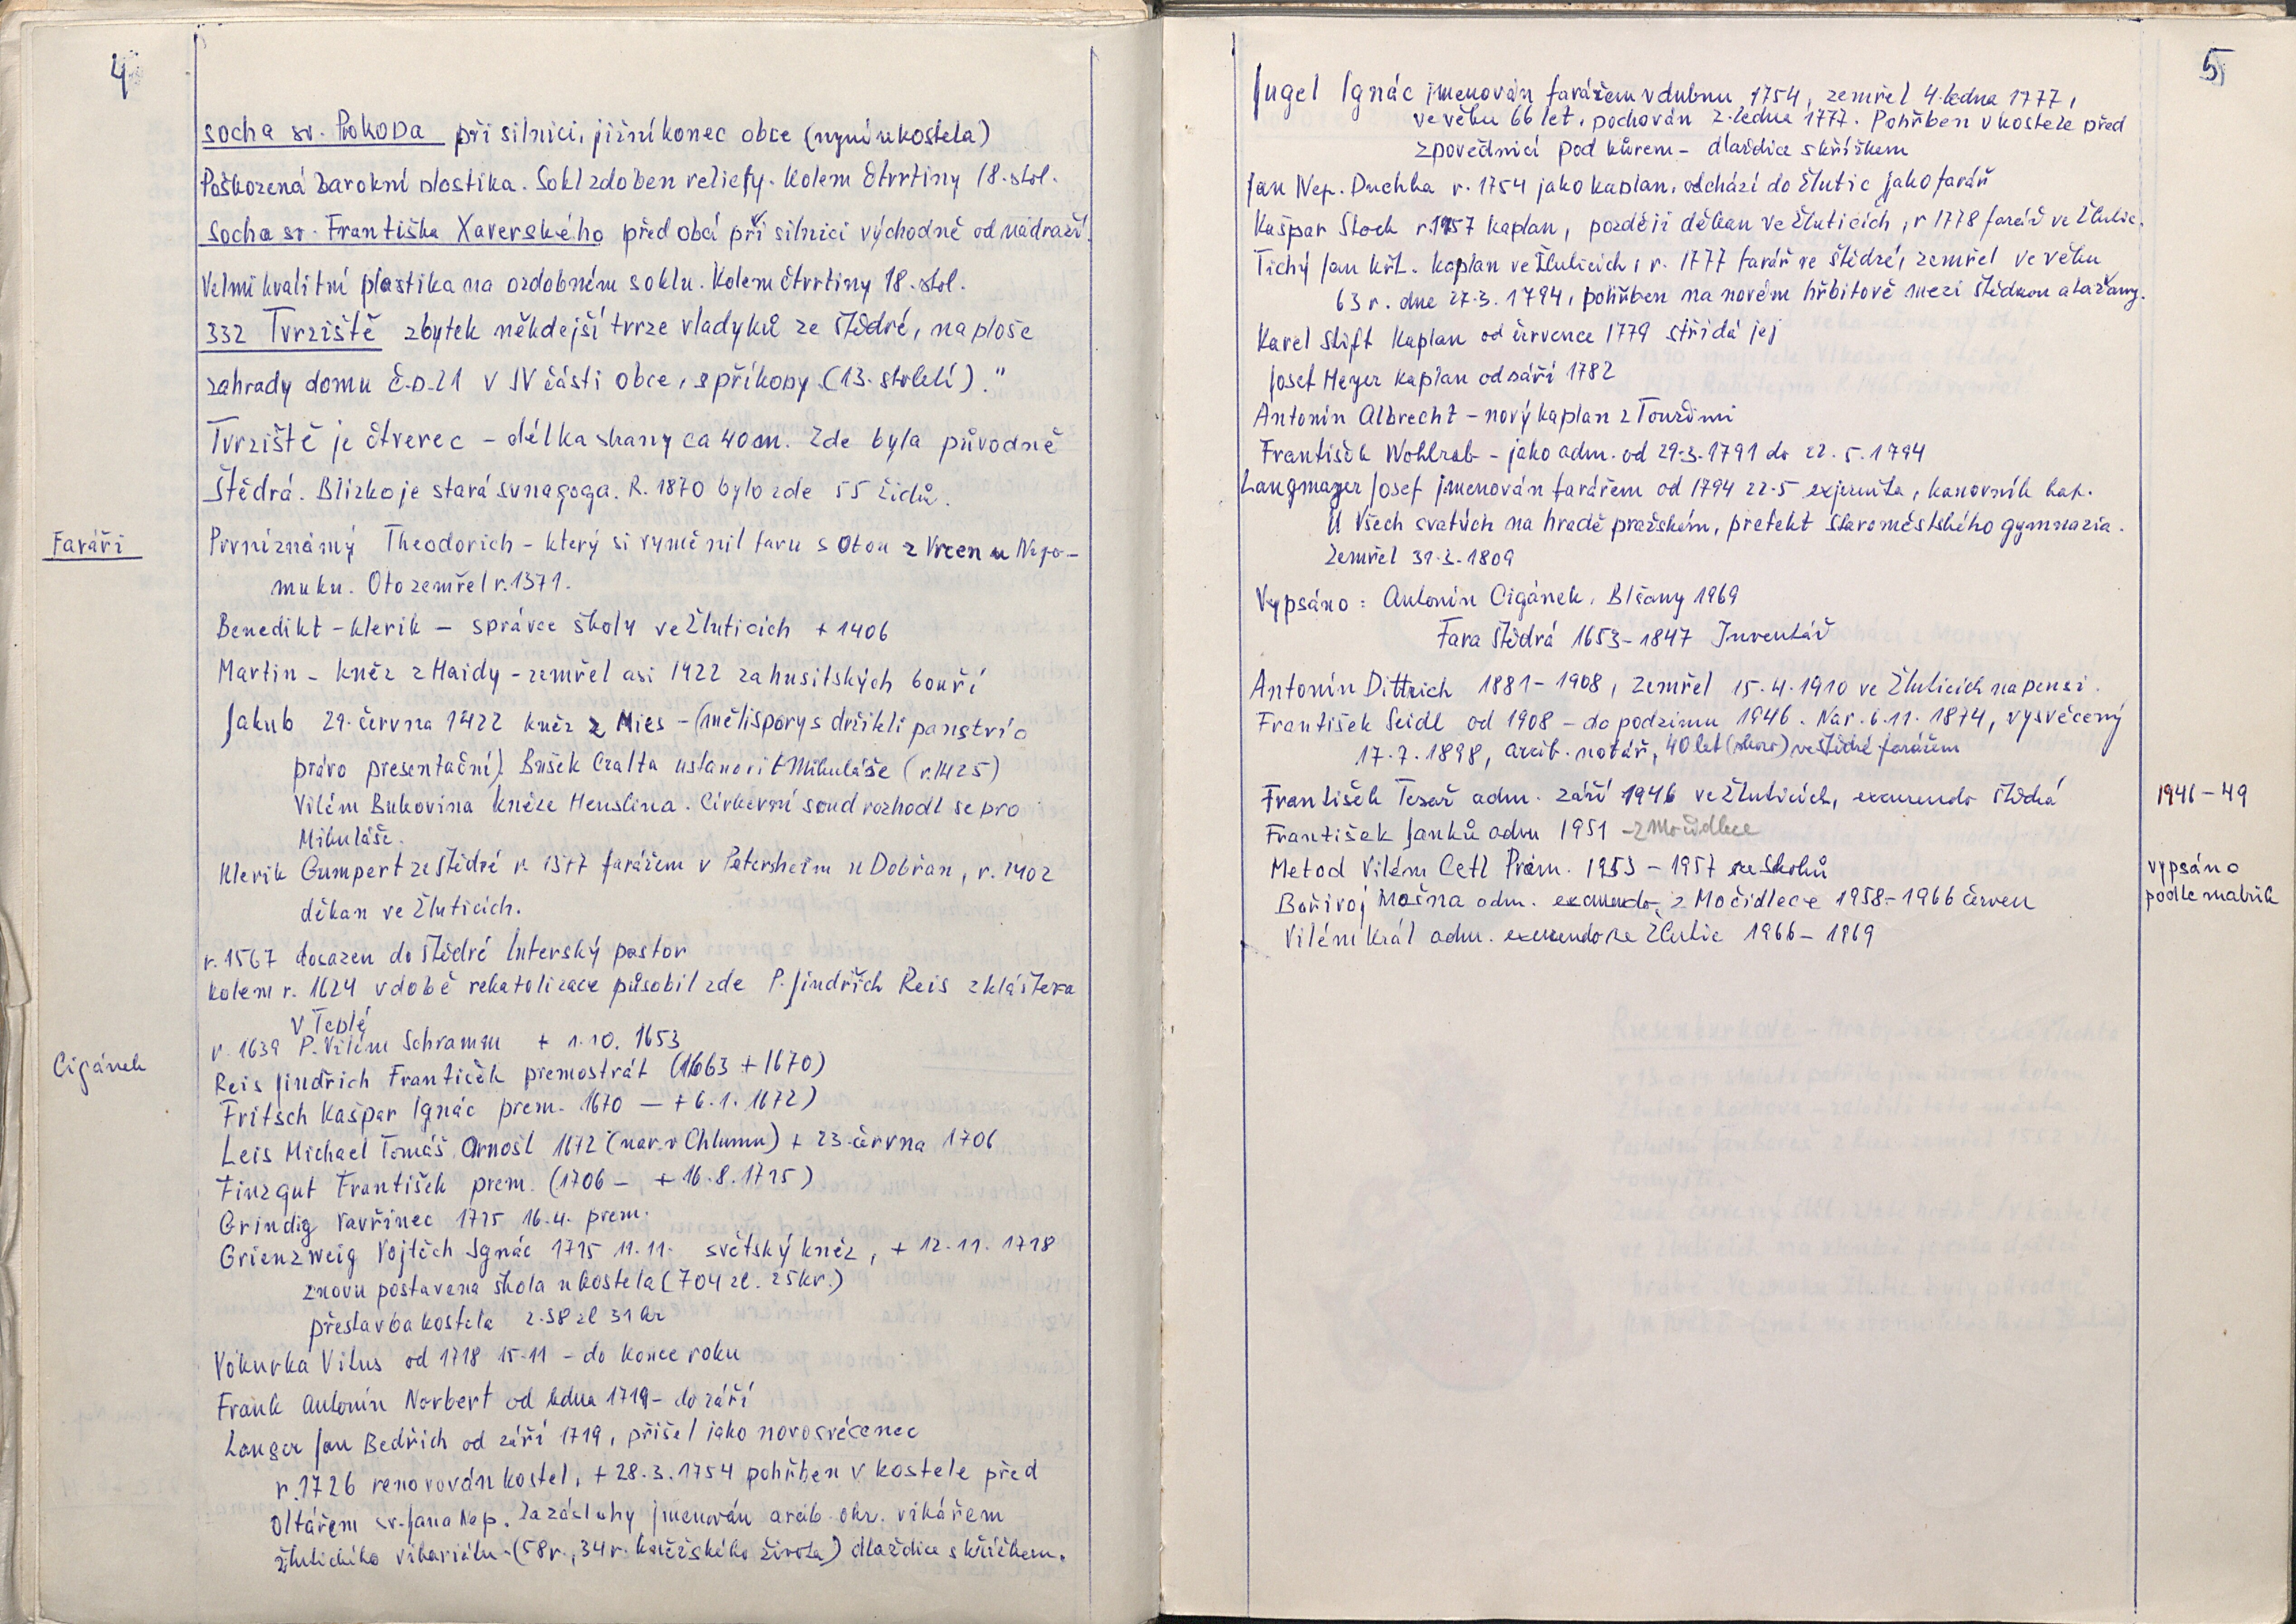 4
socha sv. Prokopa při silnici, jižní konec obce (nyní u kostela)
Poškozená barokní plastika. Sokl zdoben reliefy. Kolem čtvrtiny 18. stol.
Socha sv. Františka Xaverského před obcí při silnici východně od nádraží.
Velmi kvalitní plastika na ozdobném soklu. Kolem čtvrtiny 18. stol.
332 Tvrziště zbytek někdejší tvrze vladyků ze Štědré, na ploše
zahrady domu č.p. 21 v SV části obce, s příkopy (13. století)."
Tvrziště je čtverec - délka strany ca 40 m. Zde byla původně
Štědrá. Blízko je stará synagoga. R. 1870 bylo zde 55 židů.
Faráři
První známý Theodorich - který si vyměnil faru s Otou z Vrcen u Nepo-
muku. Oto zemřel r. 1371.
Benedikt - klerik - správce školy ve Žluticích + 1406
Martin - kněz z Haidy - zemřel asi 1422 za husitských bouří
Jakub 29. června 1422 kněz z Mies - (měli spory s držiteli panství o
právo presentační). Bušek Calta ustanovil Mikuláše (r. 1425)
Vilém Bukovina kněze Henslina. Církevní soud rozhodl se pro
Mikuláše.
Klerik Gumpert ze Štědré r. 1377 farářem v Petersheim u Dobřan, r. 1402
děkan ve Žluticích.
r. 1567 dosazen do Štědré luterský pastor
kolem r. 1624 v době rekatolizace působil zde P. Jindřich Reis z kláštera
v Teplé
Cigánek
r. 1639 P. Vilém Schramm + 1.10. 1653
Reis Jindřich František premostrát (1663 + 1670)
Fritsch Kašpar Ignác prem. 1670 - + 6.1. 1672)
Leis Michael Tomáš Arnošt 1672 (nar. v Chlumu) + 23. června 1706
Finzgut František prem. (1706 - + 16.8. 1715)
Grindig Vavřinec 1715 16.4. prem.
Grienzweig Vojtěch Ignác 1715 11.11. světský kněz, + 12.11. 1718
znovu postavena škola u kostela (704 zl. 25 kr.)
přestavba kostela 238 zl 31 kr
Vokurka Vitus od 1718 15.11 - do konce roku
Frank Antonín Norbert od ledna 1719 - do září
Langer Jan Bedřich od září 1719, přišel jako novosvěcenec
r. 1726 renovován kostel, + 28.3. 1754 pohřben v kostele před
oltářem sv. Jana Nep. Za zásluhy jmenován arcib. okr. vikářem
žlutického vikariátu - (58 r., 34 r. kněžského života) dlaždice s křížkem.
5
Jugel Ignác jmenován farářem v dubnu 1754, zemřel 4. ledna 1777,
ve věku 66 let, pochován 2. ledna 1777. Pohřben v kostele před
zpovědnicí pod kůrem - dlaždice s křížkem
Jan Nep. Duchha r. 1754 jako kaplan, odchází do Žlutic jako farář
Kašpar Stock r. 1757 kaplan, později děkan ve Žluticích, r 1778 farář ve Žlutic.
Tichý Jan Křt. kaplan ve Žluticích, r. 1777 farář ve Štědré, zemřel ve věku
63 r. dne 27.3. 1794, pohřben na novém hřbitově mezi Štědrou a Lažany.
Karel Stift kaplan od července 1779 střídá jej
Josef Meyer kaplan od září 1782
Antonín Albrecht - nový kaplan z Toužimi
František Wohlrab - jako adm. od 29.3. 1791 do 22. 5. 1794
Langmayer Josef jmenován farářem od 1794 22.5 exjezuita, kanovník kap.
U Všech svatých na hradě pražském, prefekt staroměstského gymnazia.
Zemřel 31.3. 1809
Vypsáno: Antonín Cigánek, Blšany 1969
Fara Štědrá 1653-1847 Inventář
Antonín Dittrich 1881-1908, zemřel 15.4. 1910 ve Žluticích na pensi.
František Seidl od 1908 - do podzimu 1946. Nar. 6.11. 1874, vysvěcený
17.7. 1898, arcib. notář, 40 let (skoro) ve Štědré farářem
František Tesař adm. září 1946 ve Žluticích, excurrendo Štědrá
1946-49
František Janků adm 1951 - z Močidlec
Metod Vilém Cetl Prem. 1953 - 1957 ze Skoků
vypsáno
podle matrik
Bořivoj Mošna adm. excurrendo z Močidlece 1958-1966 červen
Vilém Král adm. excurrendo ze Žlutic 1966-1969